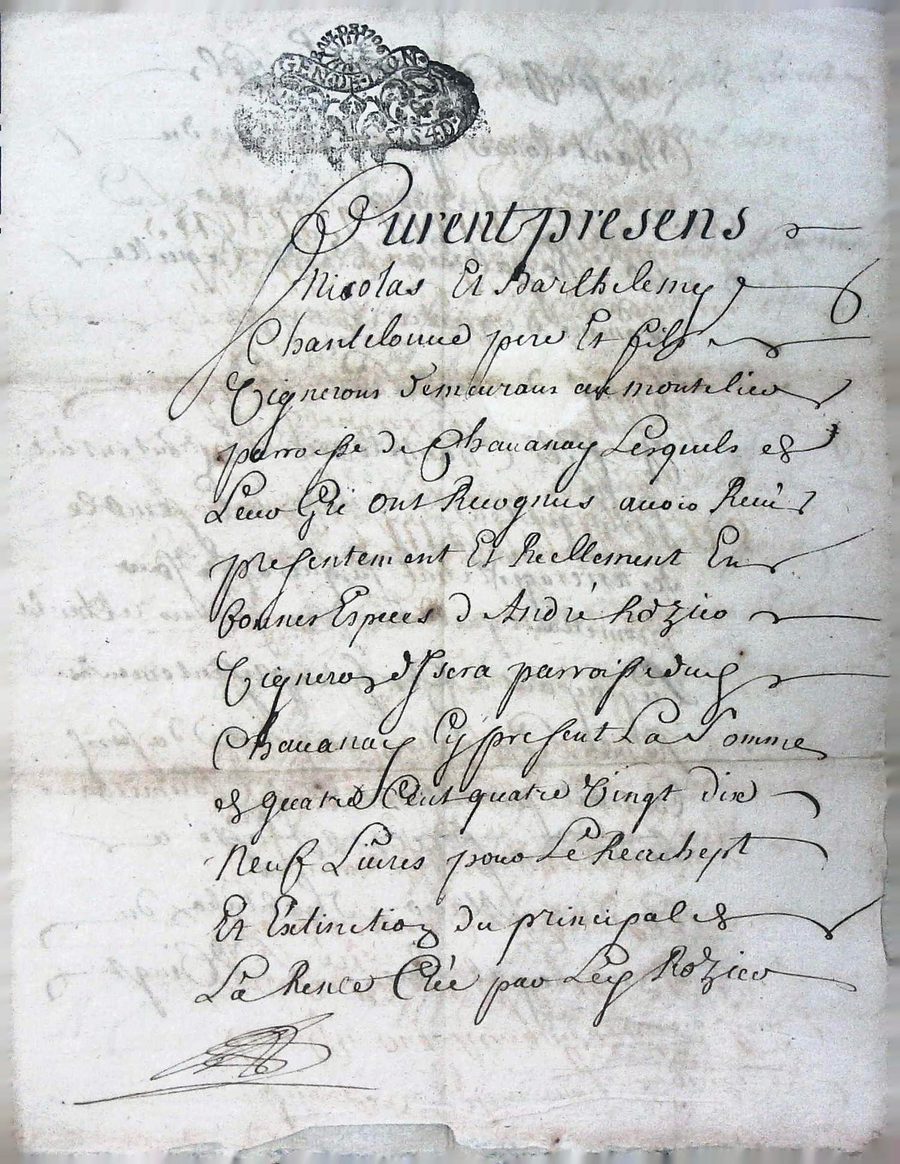 GEN.DE.LION
Furent presens
Nicolas Et Barthelemy
Chantelouue pere Et fils
Vignerons demeurans au montelier
parroisse de Chauanay Lesquels de
Leur Gré ont Recognus auoir Receu
presentement Et Reellement En
bonnes Especes d'André Rozier
Vigneron d'Isera parroisse dud
Chauanay Cy present La Somme
de quatre Cent quatre Vingt dix
Neuf Liures pour Le Reachept
Et Extinction du principal de
La Rente Creé par Led Rozier